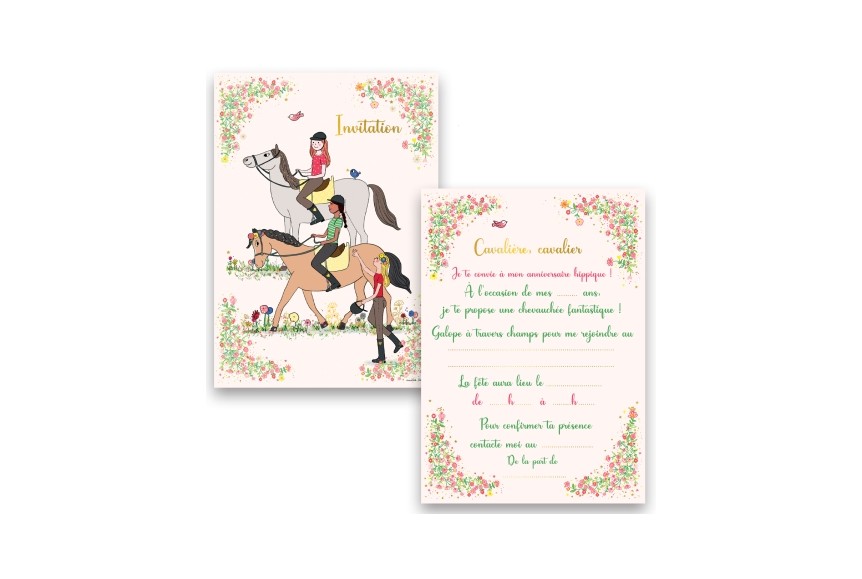 Invitation
Cavalière, cavalier
Je te convie à mon anniversaire hippique !
À l'occasion de mes ......... ans,
je te propose une chevauchée fantastique !
Galope à travers champs pour me rejoindre au
La fête aura lieu le
de ...... h ...... à ...... h ......
Pour confirmer ta présence
contacte moi au
De la part de